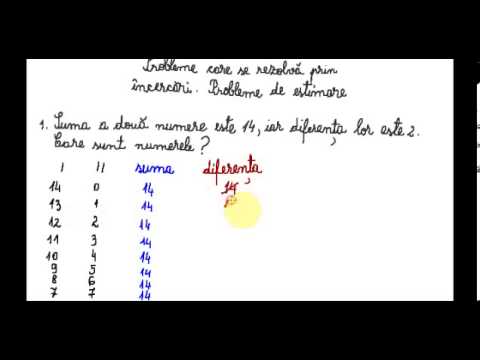 Probleme care se rezolvă prin
încercări. Probleme de estimare
1. Suma a două numere este 14, iar diferența lor este 2.
Care sunt numerele?
I II suma diferența
14 0 14 14
13 1 14
12 2 14
11 3 14
10 4 14
9 5 14
8 6 14
7 7 14